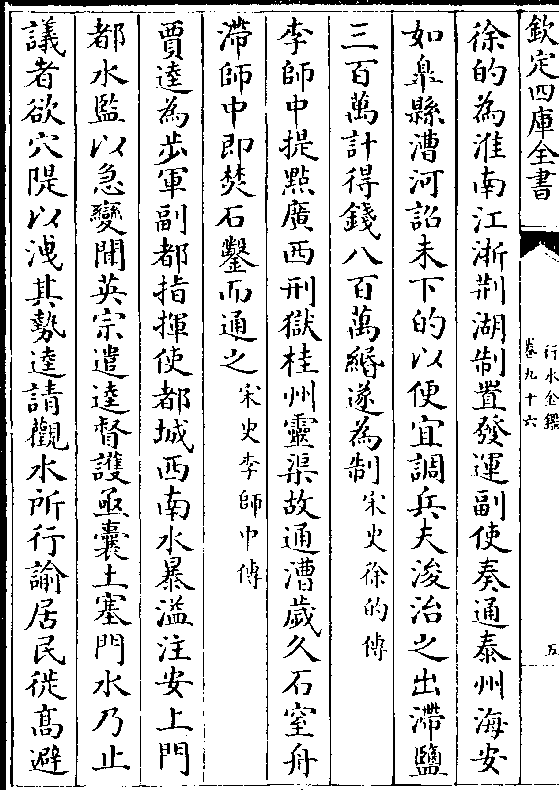 欽定四庫全書
行水金鑑
卷九十六
五
徐的為淮南江淛荆湖制置發運副使奏通泰州海安
如臯縣漕河詔未下的以便宜調兵夫浚治之出滯鹽
三百萬計得錢八百萬緡遂為制宋史徐的傳
李師中提點廣西刑獄桂州靈渠故通漕歲久石窒舟
滯師中即焚石鑿而通之宋史李師中傳
賈逵為步軍副都指揮使都城西南水暴溢注安上門
都水監以急變聞英宗遣逵督護亟囊土塞門水乃止
議者欲穴隄以洩其勢逵請觀水所行諭居民徙髙避